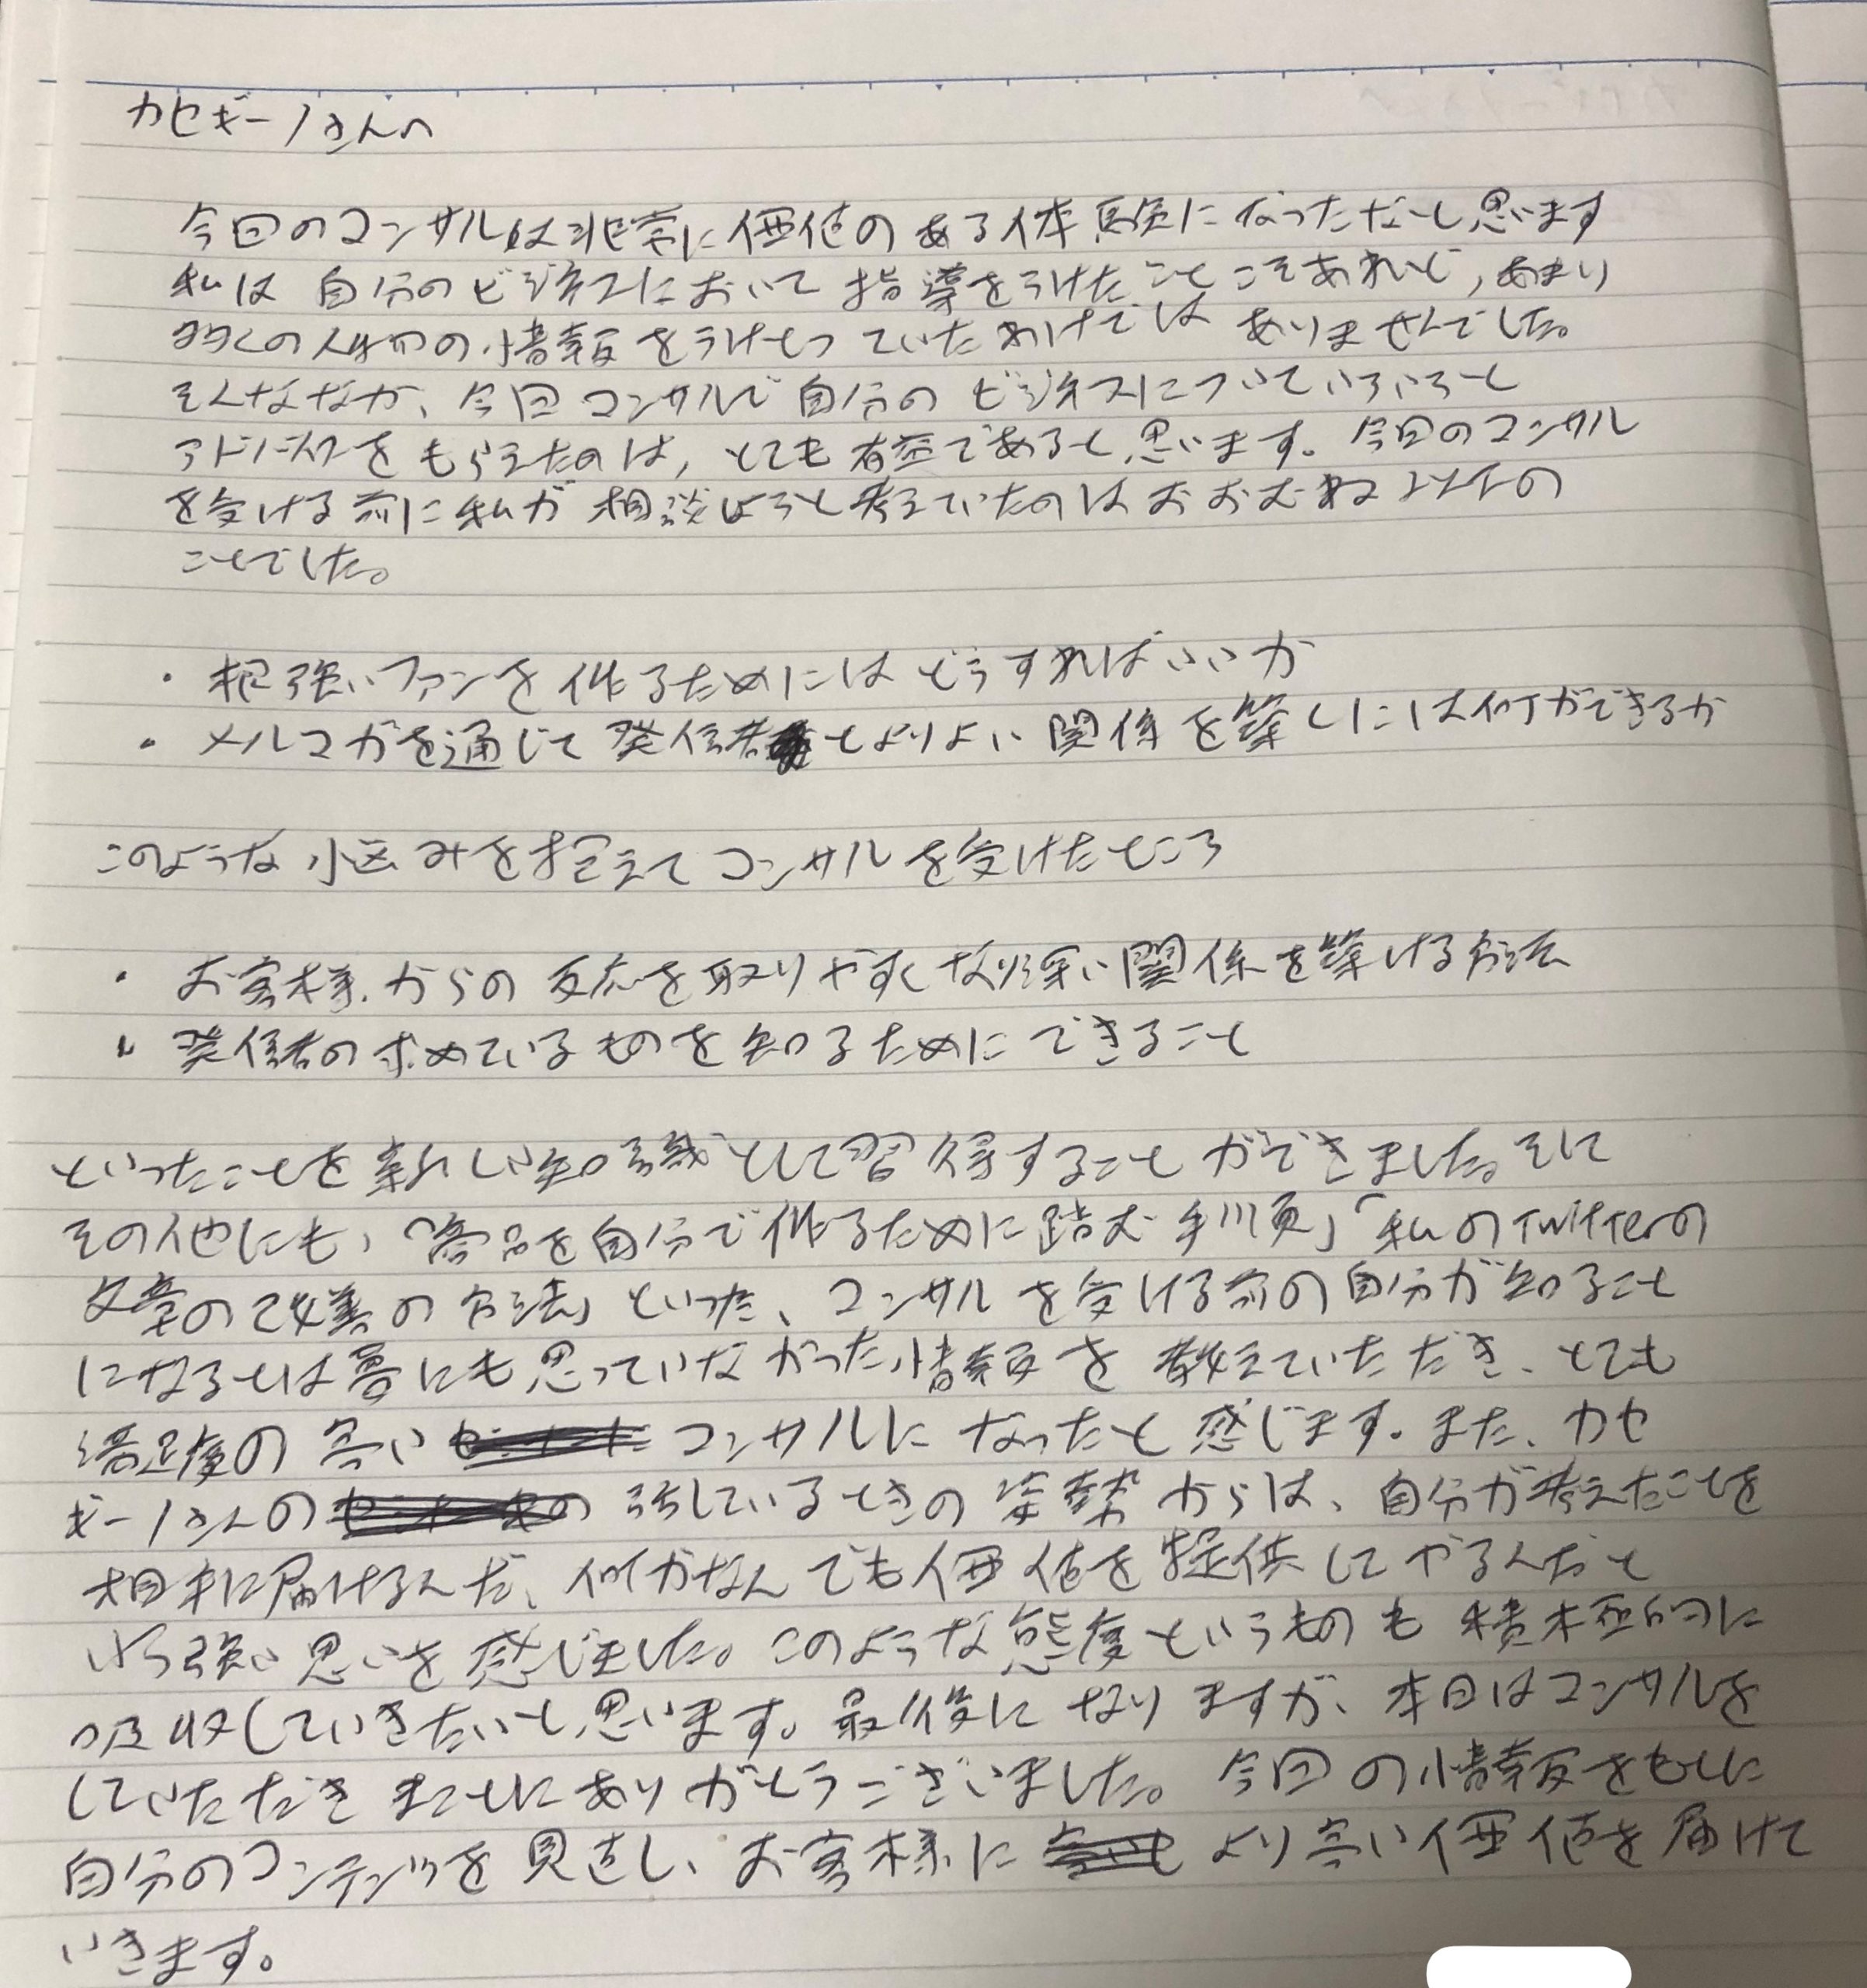 カセギーノさんへ
今回のコンサルは非常に価値のある体験になったなーと思います
私は自分のビジネスにおいて指導をうけたことこそあれど、あまり
多くの人からの情報をうけもっていたわけではありませんでした。
そんななか、今回コンサルで自分のビジネスについていろいろと
アドバイスをもらえたのは、とても有益であると思います。今回のコンサル
を受ける前に私が相談しようと考えていたのはおおむね以下の
ことでした。
・根強いファンを作るためにはどうすればいいか
・メルマガを通じて発信者とよりよい関係を築くには何ができるか
このような悩みを抱えてコンサルを受けたところ
・お客様からの反応を取りやすくなり深い関係を築ける方法
・発信者の求めているものを知るためにできること
といったことを新しい知識として習得することができました。そして
その他にも、「商品を自分で作るために踏む手順」「私のTwitterの
文章の改善の方法」といった、コンサルを受ける前の自分が知ること
になるとは夢にも思っていなかった情報を教えていただき、とても
満足度の高いコンサルになったと感じます。また、カセ
ギーノさんの話しているときの姿勢からは、自分が考えたことを
相手に届けるんだ、何がなんでも価値を提供してやるんだと
いう強い思いを感じました。このような態度というものも積極的に
吸収していきたいと思います。最後になりますが、本日はコンサルを
していただきまことにありがとうございました。今回の情報をもとに
自分のコンテンツを見直し、お客様により高い価値を届けて
いきます。